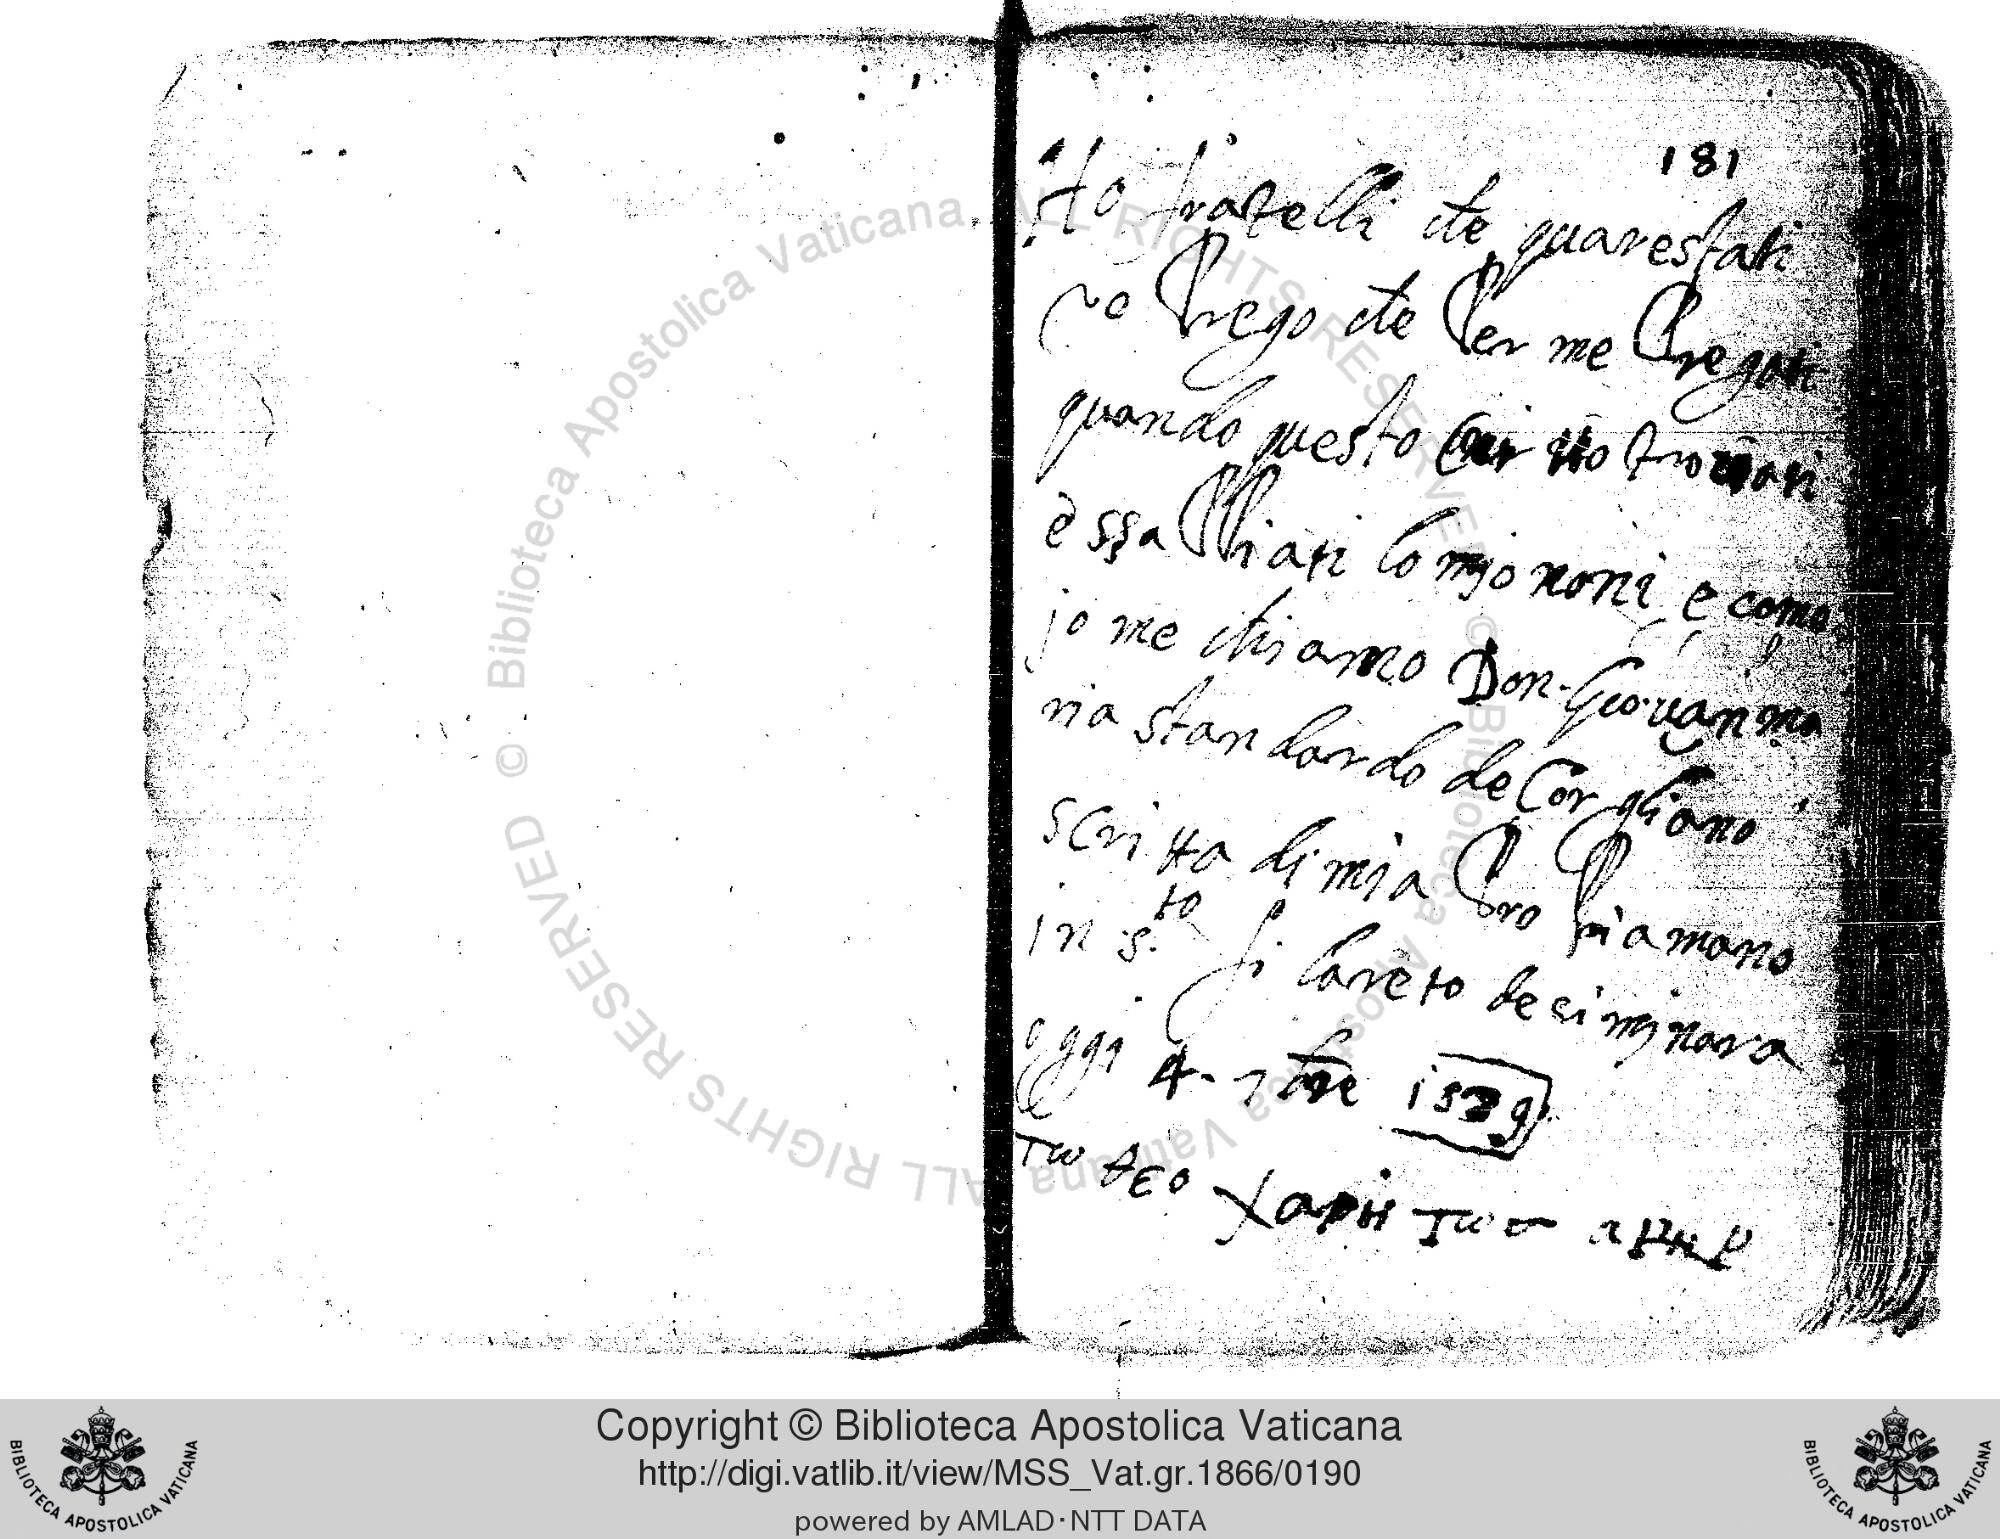 181
Ho fratelli che quarestati
ve Prego che Per me Pregati
quando questo scritto trovati
è ssa PPiati lo mjo noni e como
jo me chiamo Don-Geovanma
ria standardo de Corgliano
scritta di mia ProPria mano
in s.to fi lareto de siminara
oggi 4. 7bre
τω θεο χαρη τωσ αμην
Copyright © Biblioteca Apostolica Vaticana
http://digi.vatlib.it/view/MSS_Vat.gr.1866/0190
powered by AMLAD·NTT DATA
BIBLIOTECA APOSTOLICA VATICANA
BIBLIOTECA APOSTOLICA VATICANA
© Biblioteca Apostolica Vaticana. ALL RIGHTS RESERVED
© Biblioteca Apostolica Vaticana ALL RIGHTS RESERVED